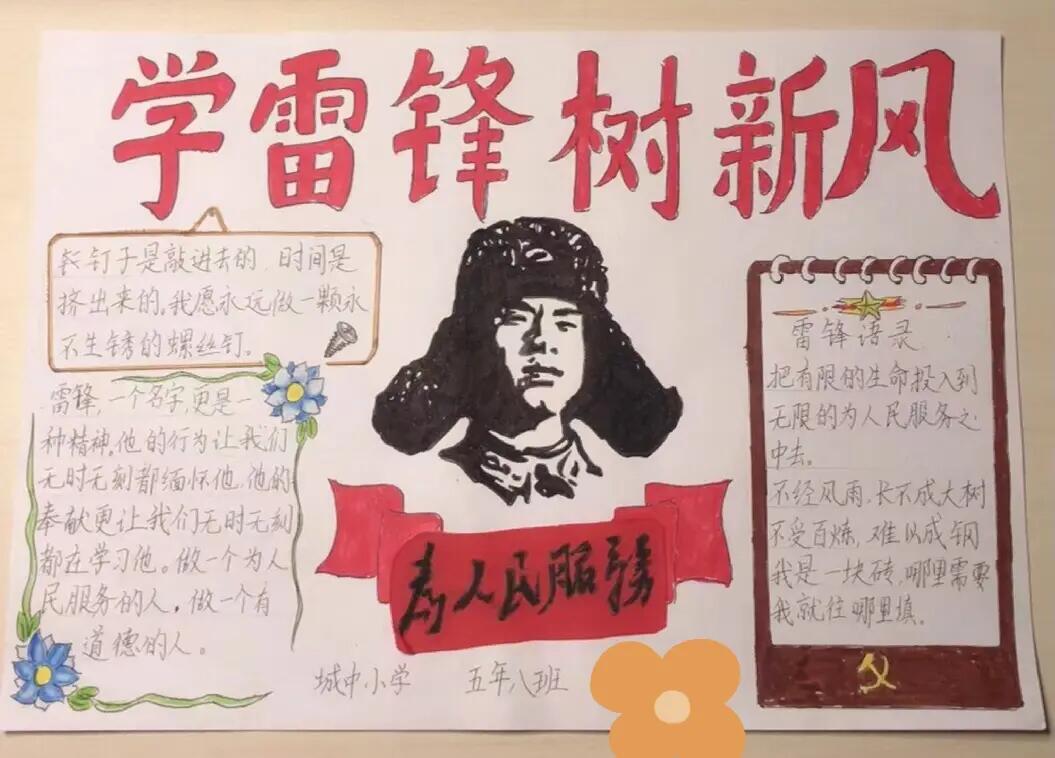 学雷锋树新风
钉子是敲进去的,时间是
挤出来的。我愿永远做一颗永
不生锈的螺丝钉。
雷锋,一个名字,更是一
种精神。他的行为让我们
无时无刻都缅怀他,他的
奉献更让我们无时无刻
都在学习他。做一个为人
民服务的人。做一个有
道德的人。
为人民服務
城中小学 五年八班
雷锋语录
把有限的生命投入到
无限的为人民服务之
中去。
不经风雨,长不成大树
不受百炼,难以成钢
我是一块砖,哪里需要
我就往哪里填.